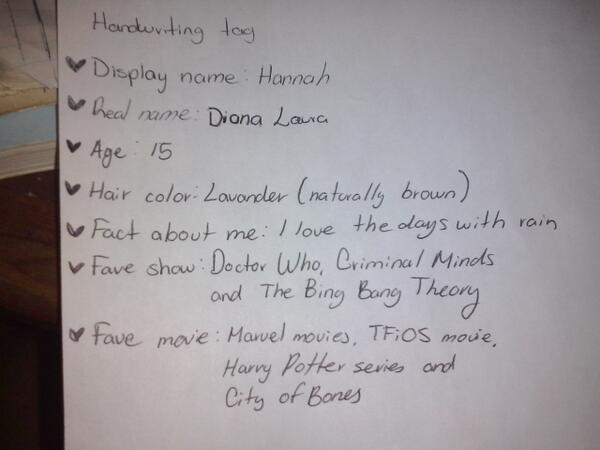 Handwriting tag
♥ Display name: Hannah
♥ Real name: Diana Laura
♥ Age: 15
♥ Hair color: Lavander (naturally brown)
♥ Fact about me: I love the days with rain
♥ Fave show: Doctor Who, Criminal Minds
and The Bing Bang Theory
♥ Fave movie: Marvel movies, TFiOS movie,
Harry Potter series and
City of Bones